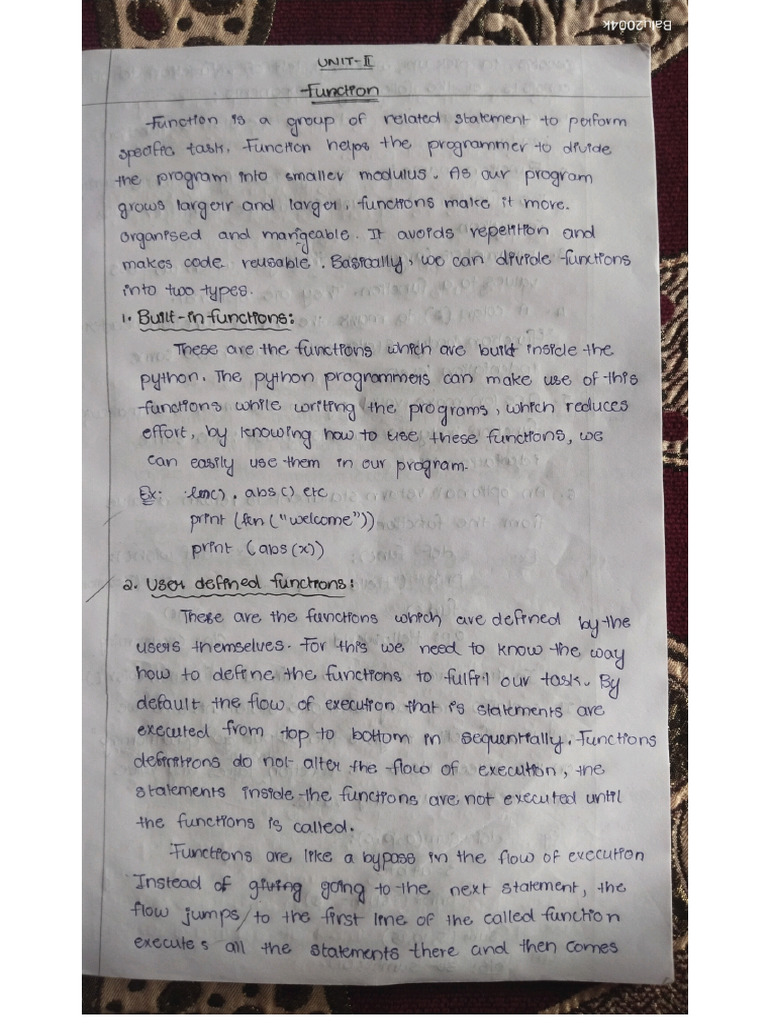 Balu2004k
UNIT-II
Function
Function is a group of related statement to perform
specific task. Function helps the programmer to divide
the program into smaller modulus. As our program
grows largerr and larger, functions make it more.
organised and mangeable. It avoids repetition and
makes code reusable. Basically, we can divide functions
into two types.
1. Built-in functions:
These are the functions which are build inside the
python. The python programmers can make use of this
functions while writing the programs, which reduces
effort, by knowing how to use these functions, we
can easily use them in our program.
Ex: len(), abs() etc
print (len ("welcome"))
print (abs(x))
2. User defined functions:
These are the functions which are defined by the
users themselves. For this we need to know the way
how to define the functions to fulfil our task. By
default the flow of execution that is statements are
executed from top to bottom in sequentially. Functions
definitions do not alter the flow of execution, the
statements inside the functions are not executed until
the functions is called.
Functions are like a bypass in the flow of execution
Instead of giving going to the next statement, the
flow jumps to the first line of the called function
executes all the statements there and then comes